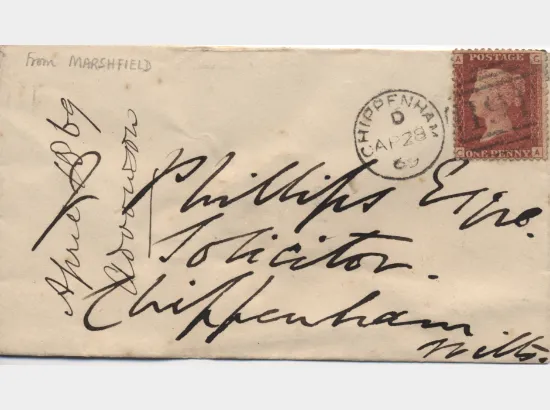 From MARSHFIELD
A POSTAGE G
G ONE PENNY A
CHIPPENHAM
D
AP 28
69
Phillips Esqre.
Solicitor.
Chippenham
Wilts.
April 69